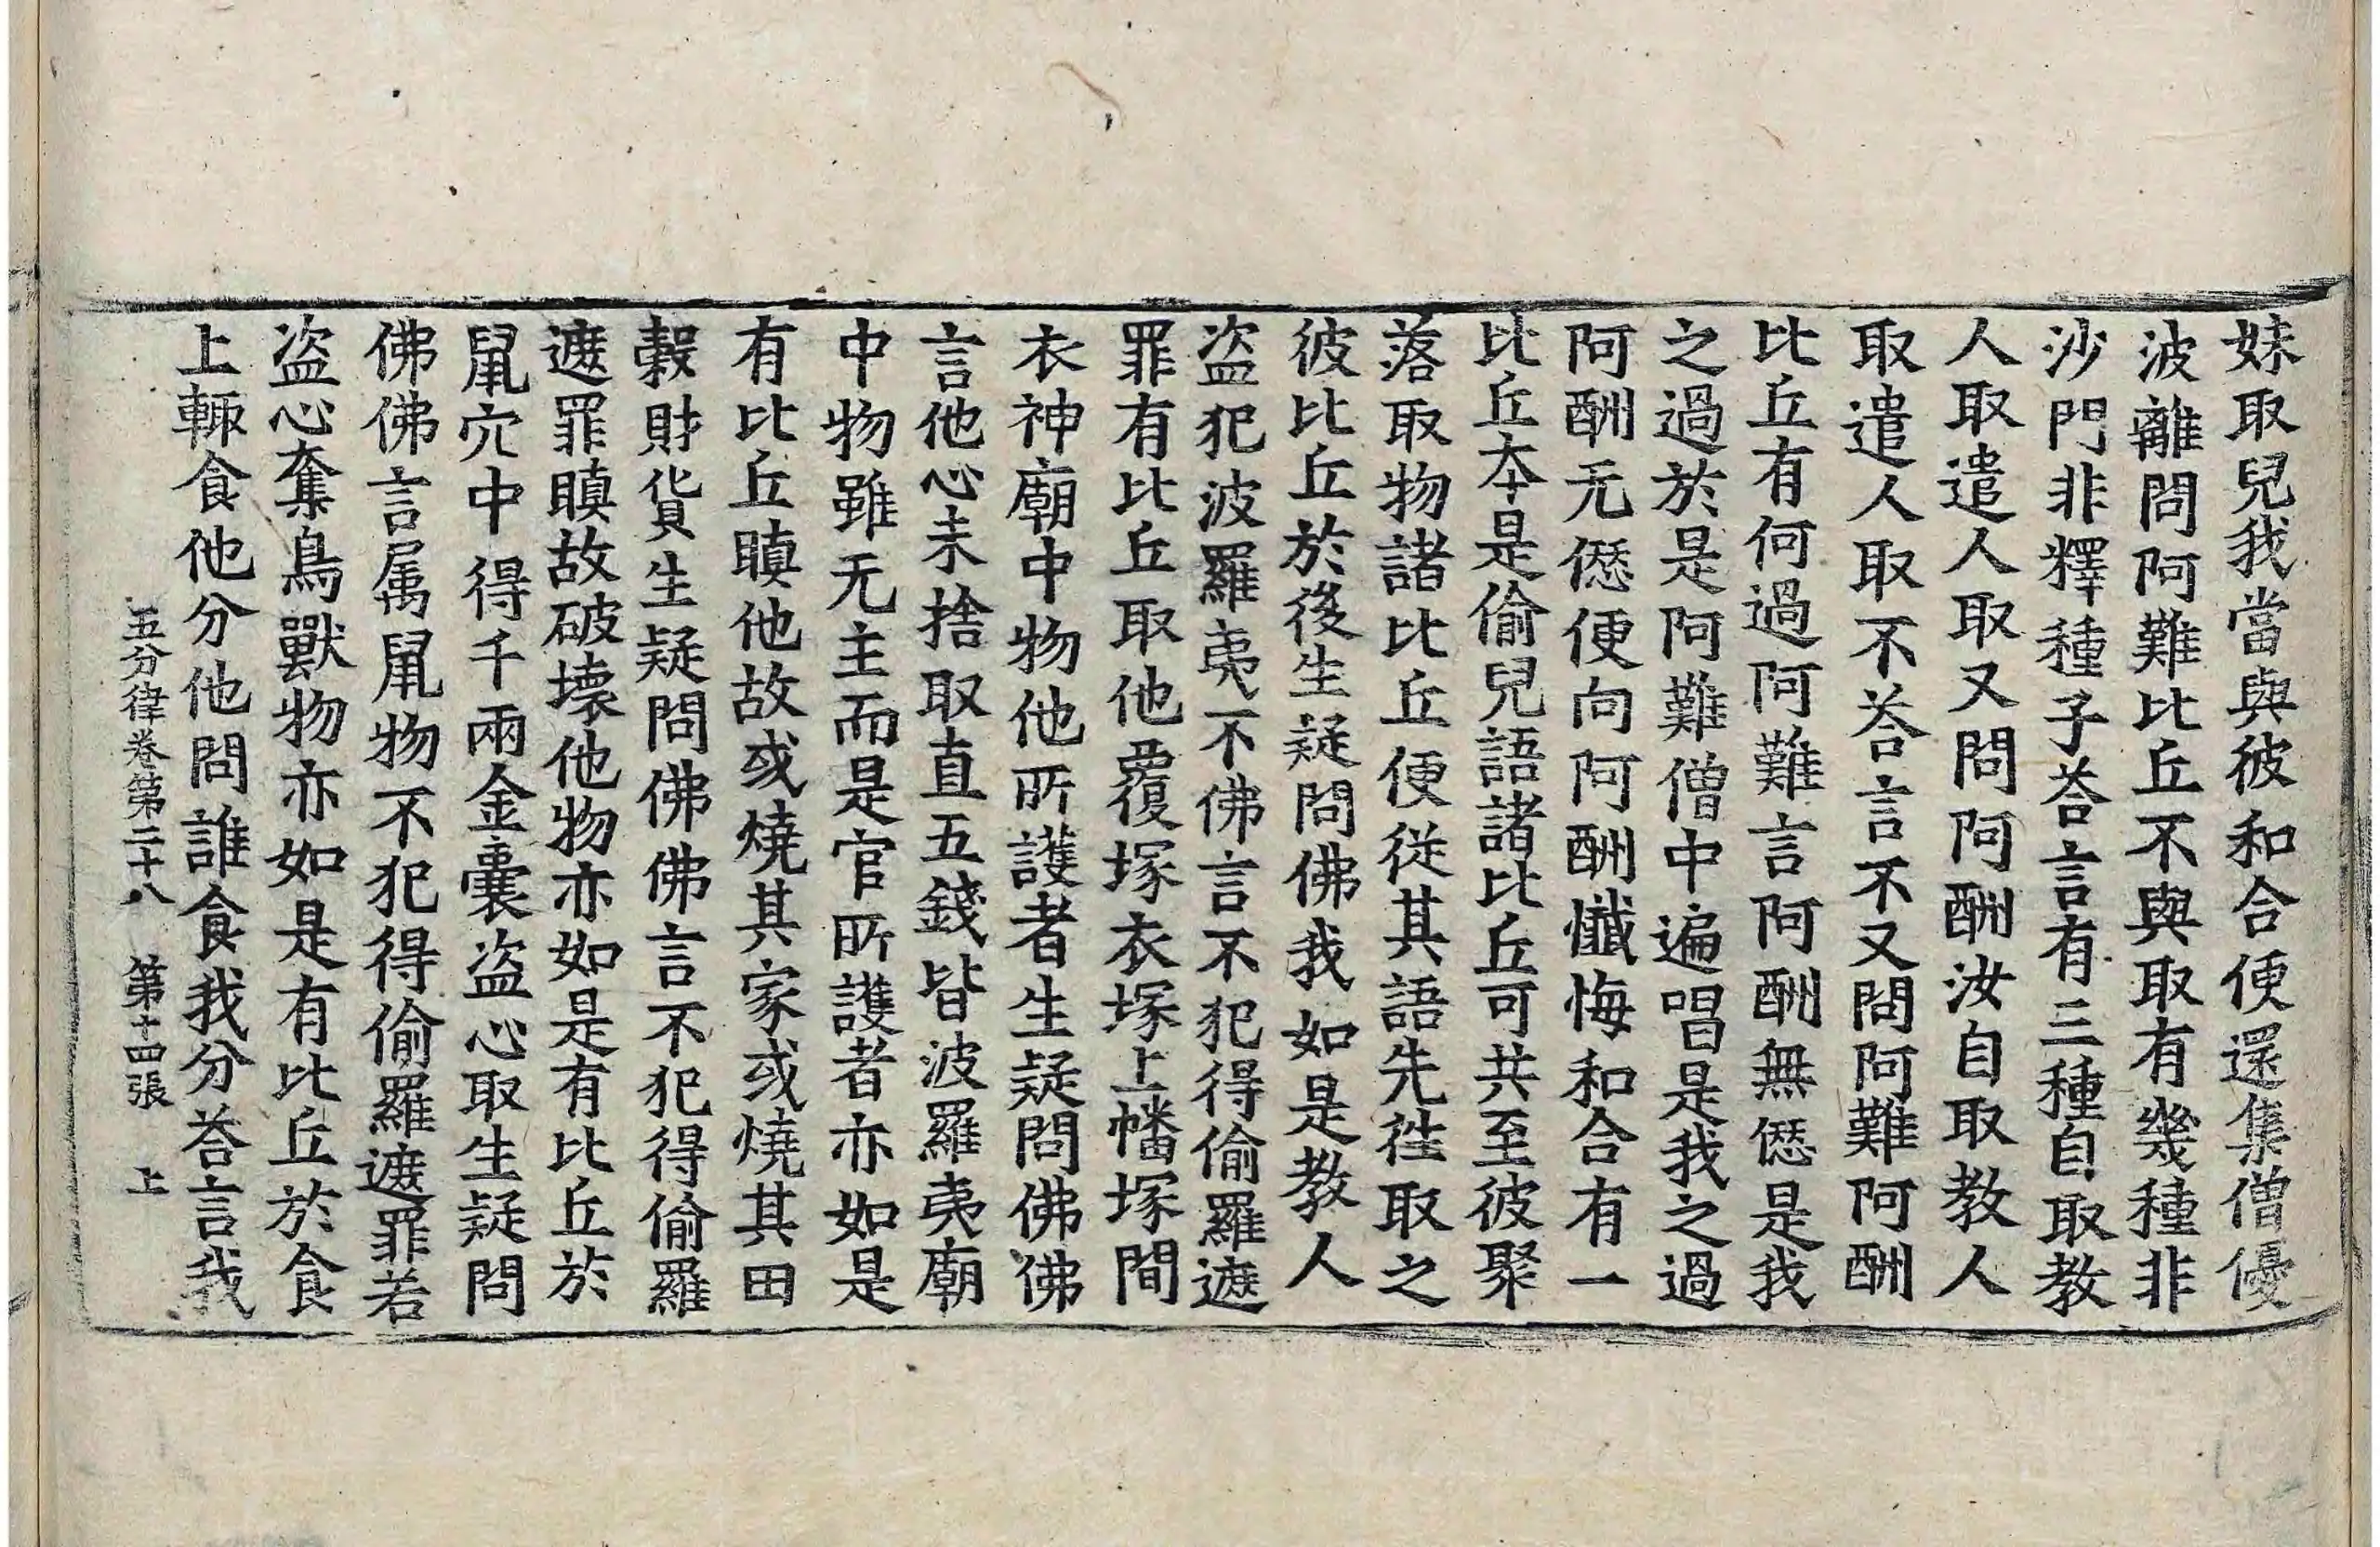 妹取兒我當與彼和合便還集僧優
波離問阿難比丘不與取有幾種非
沙門非釋種子荅言有三種自取教
人取遣人取又問阿酬汝自取教人
取遣人取不荅言不又問阿難阿酬
比丘有何過阿難言阿酬無愆是我
之過於是阿難僧中遍唱是我之過
阿酬无愆便向阿酬懺悔和合有一
比丘本是偷兒語諸比丘可共至彼聚
落取物諸比丘便從其語先往取之
彼比丘於後生疑問佛我如是教人
盜犯波羅夷不佛言不犯得偷羅遮
罪有比丘取他覆塚衣塚上幡塚間
衣神廟中物他所護者生疑問佛佛
言他心未捨取直五錢皆波羅夷廟
中物雖无主而是官所護者亦如是
有比丘瞋他故或燒其家或燒其田
穀財貨生疑問佛佛言不犯得偷羅
遮罪瞋故破壞他物亦如是有比丘於
鼠穴中得千兩金囊盜心取生疑問
佛佛言属鼠物不犯得偷羅遮罪若
盜心奪鳥獸物亦如是有比丘於食
上輙食他分他問誰食我分荅言我
五分律卷第二十八 第十四張 上